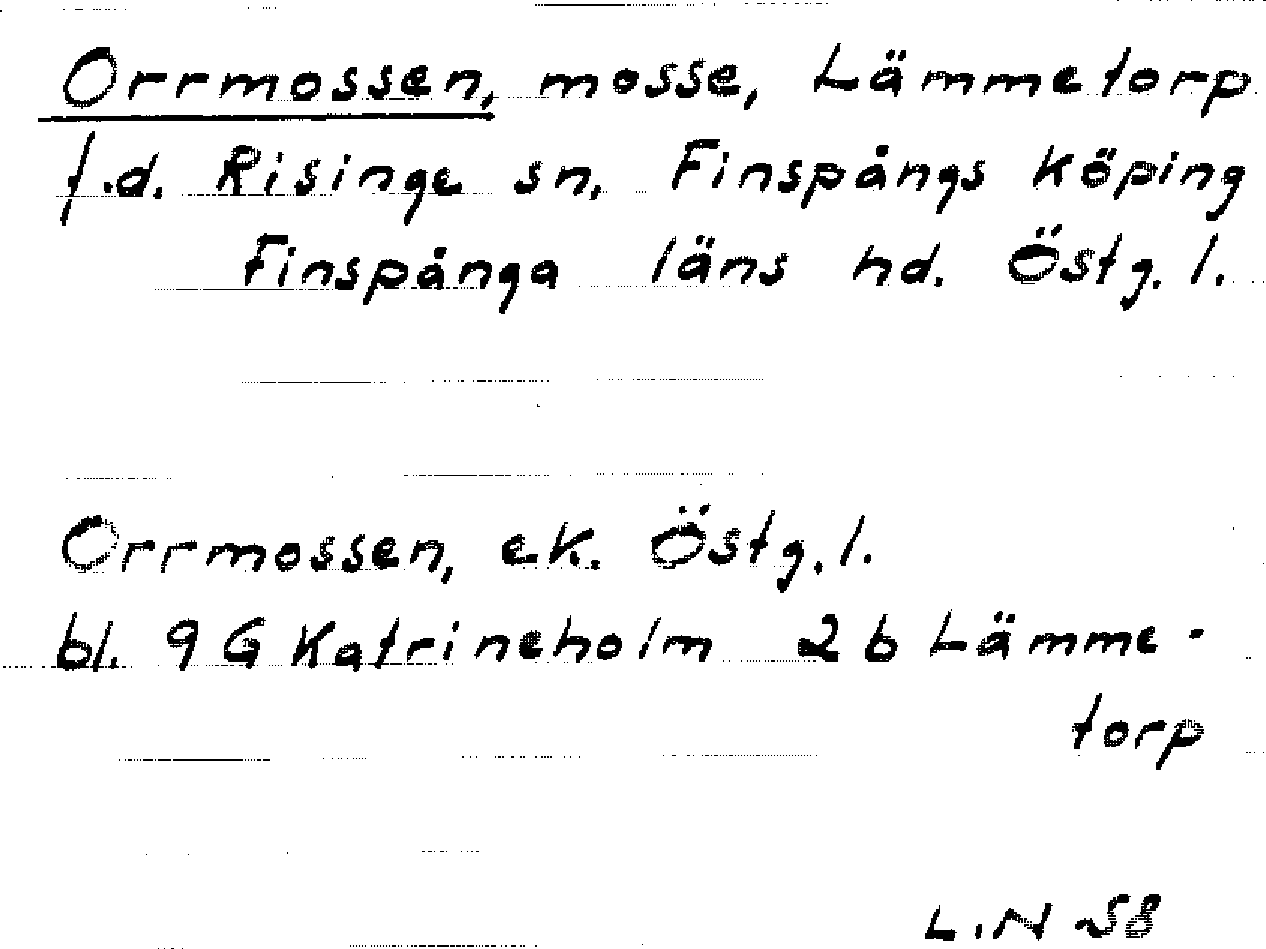 Orrmossen, mosse, Lämmetorp
f.d. Risinge sn, Finspångs köping
Finspånga läns hd. Östg. l.
Orrmossen, ek. Östg. l.
bl. 9 G Katrineholm 2 b Lämme-
torp
L.N 58